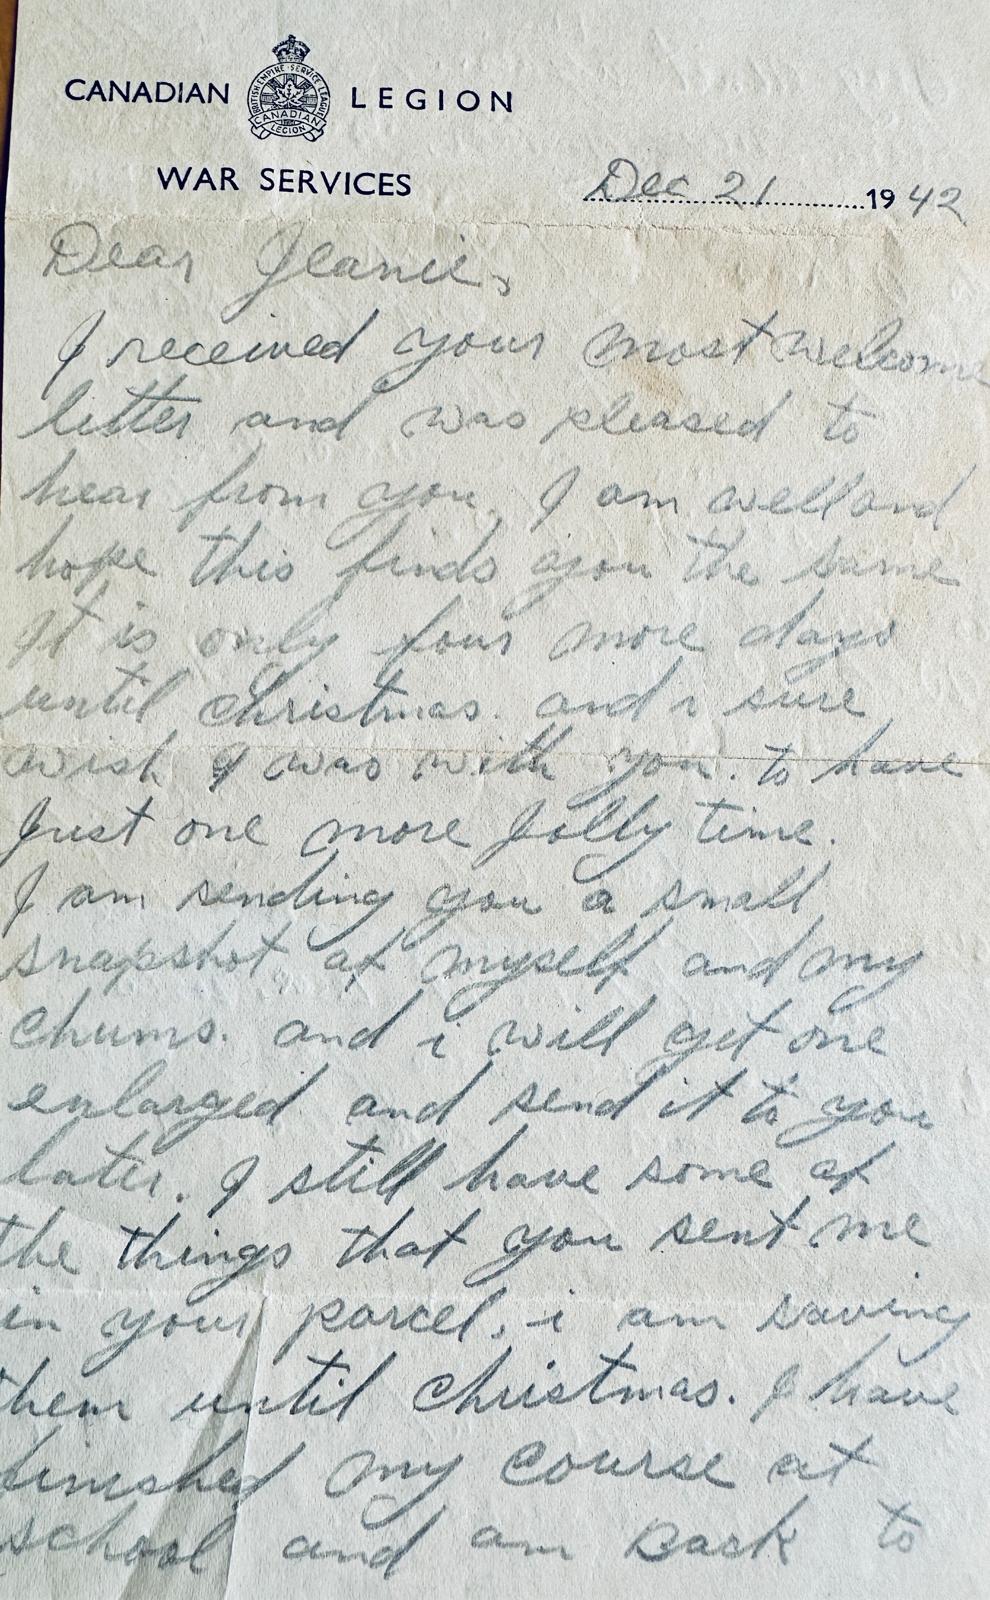 CANADIAN LEGION
BRITISH EMPIRE SERVICE LEAGUE
CANADIAN
LEGION
WAR SERVICES
Dec 21 1942
Dear Jeanie,
I received your most welcome
letter and was pleased to
hear from you. I am well and
hope this finds you the same
It is only four more days
until christmas. and i sure
wish I was with you. to have
Just one more Jolly time.
I am sending you a small
snapshot of myself and my
chums. and i will get one
enlarged and send it to you
later. I still have some of
the things that you sent me
in your parcel, i am saving
them until christmas. I have
finished my course at
school and am back to